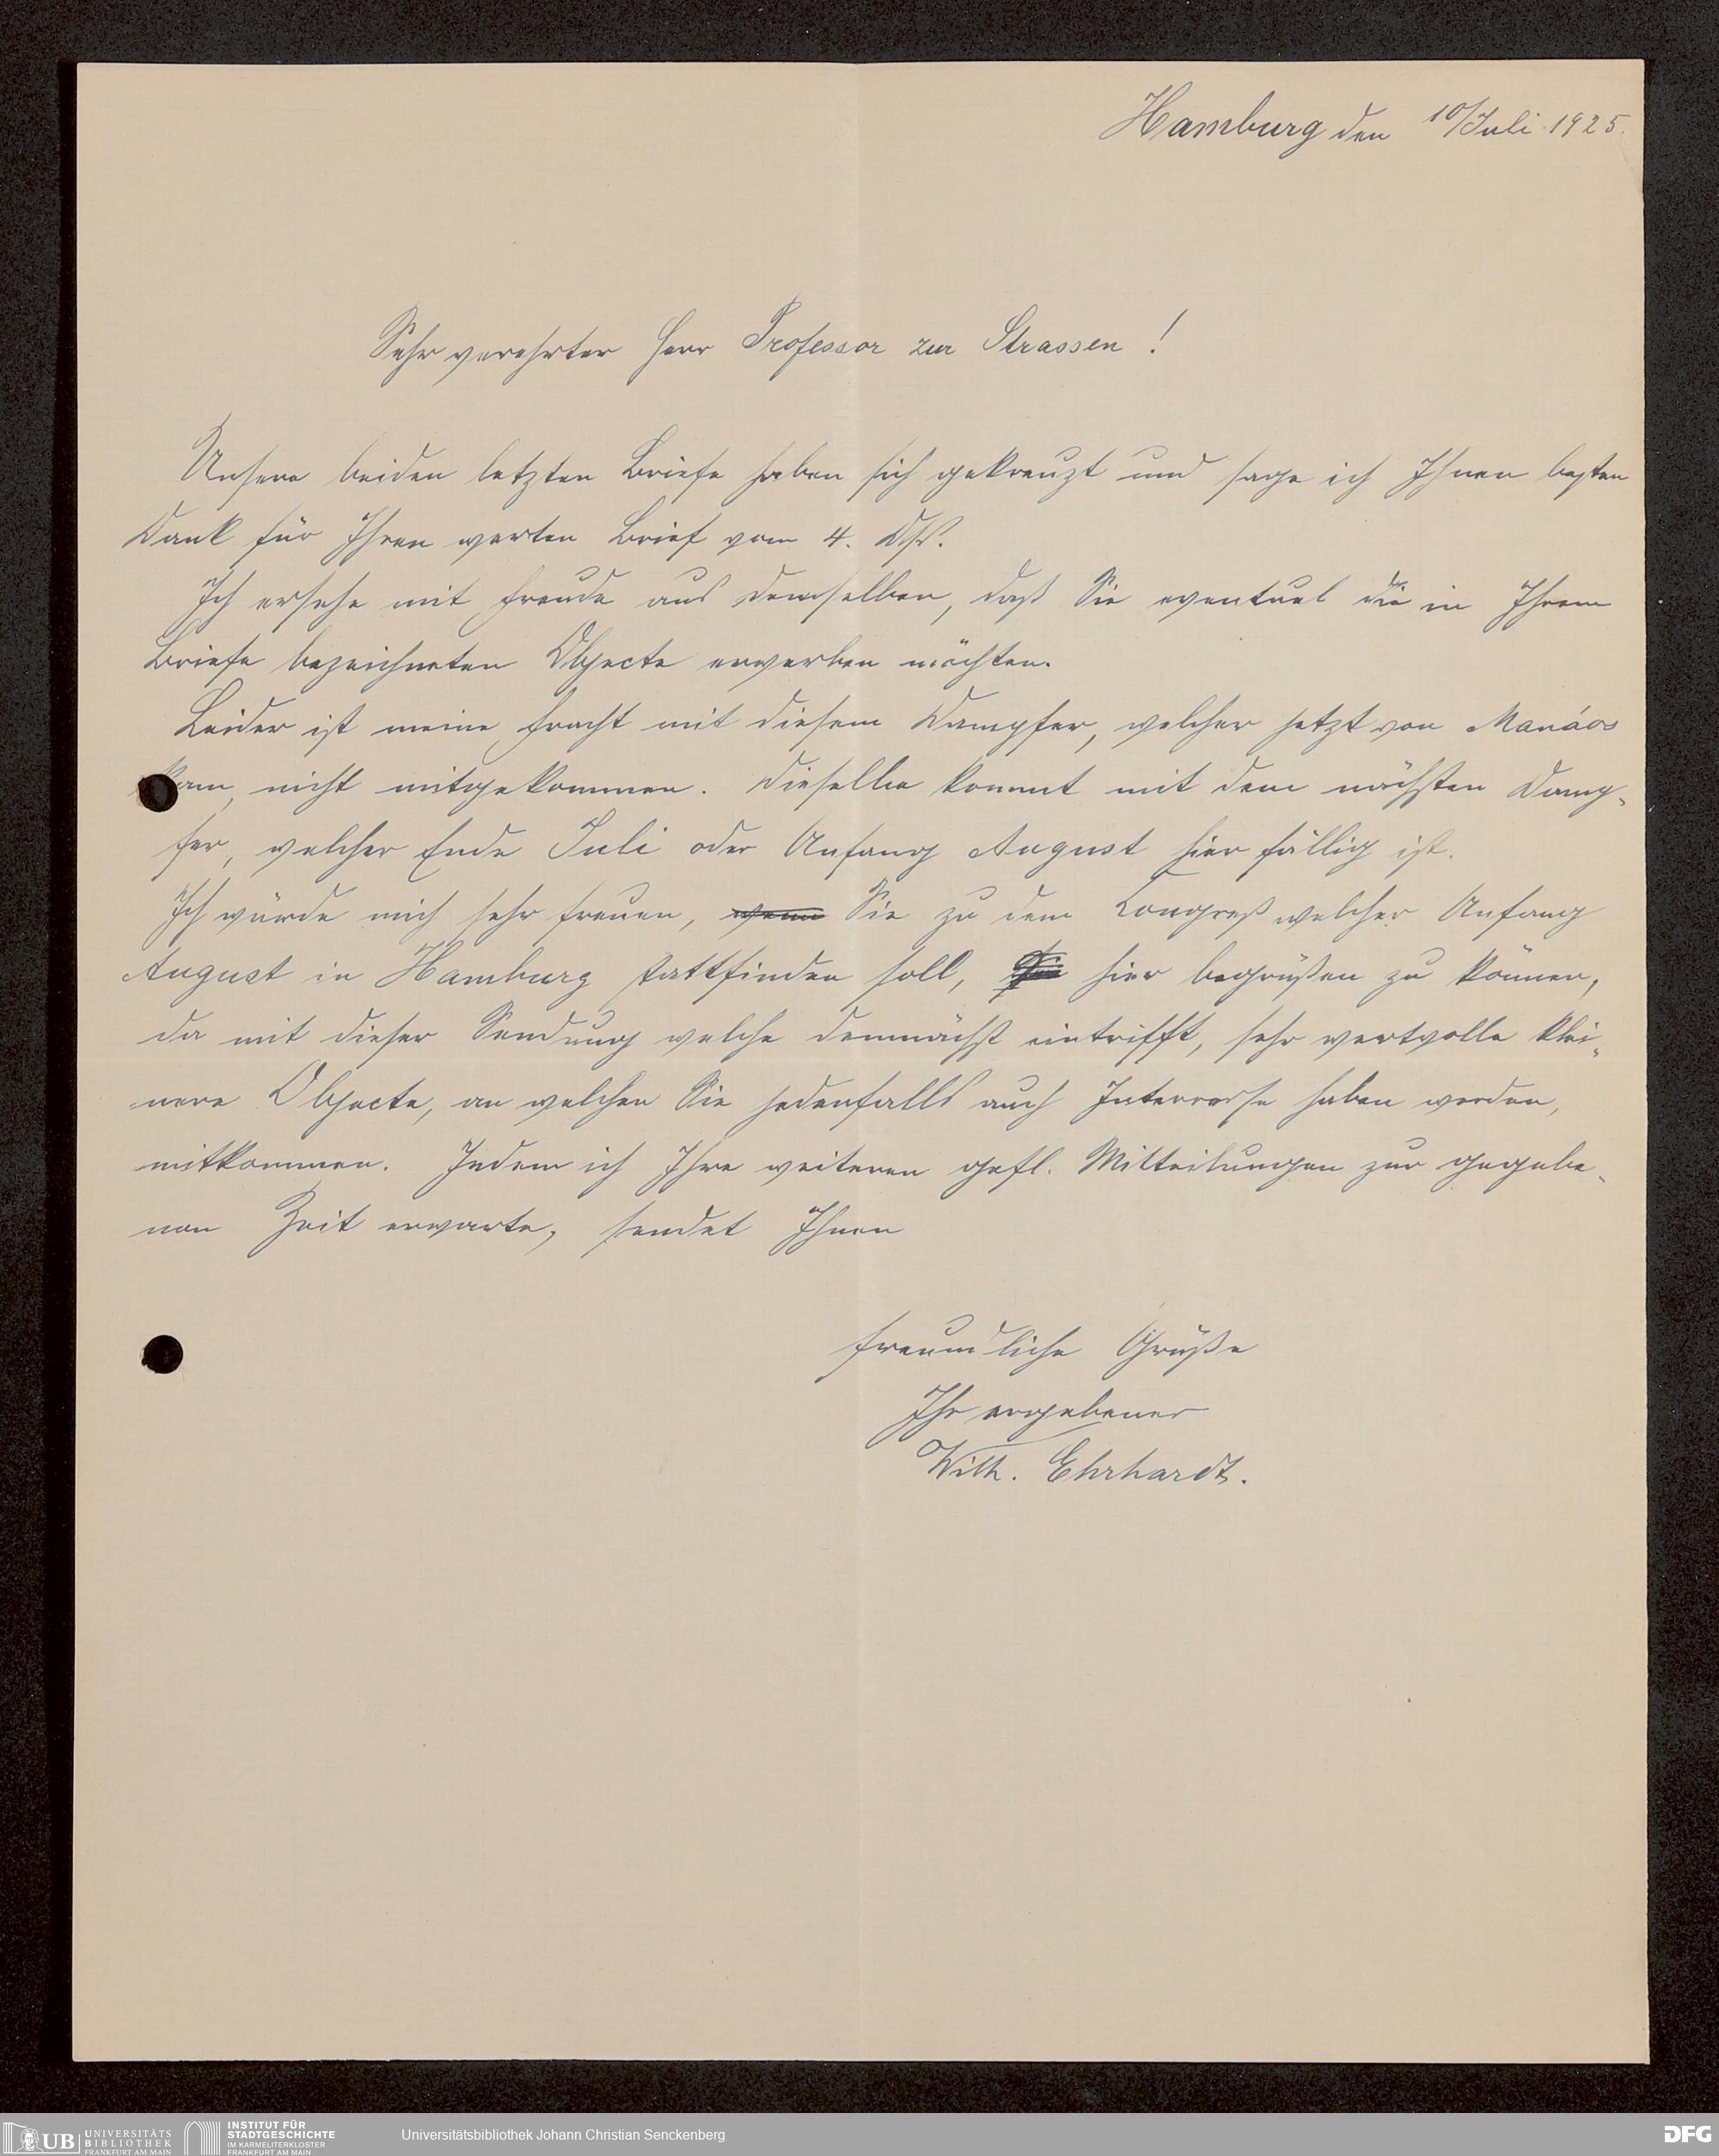 Hamburg den 10/Juli 1925.
Sehr verehrter Herr Professor zur Strassen!
Unsere beiden letzten Briefe haben sich gekreuzt und sage ich Ihnen besten
Dank für Ihren werten Brief vom 4. Ds.
Ich ersehe mit Freude aus demselben, daß Sie eventuel die in Ihrem
Briefe bezeichneten Objecte erwerben möchten.
Leider ist meine Fracht mit diesem Dampfer, welcher jetzt von Manáos
kam, nicht mitgekommen. Dieselbe kommt mit dem nächsten Damp-
fer, welcher Ende Juli oder Anfang August hier fällig ist.
Ich würde mich sehr freuen, wenn Sie zu dem Congreß welcher Anfang
August in Hamburg stattfinden soll, Sie hier begrüßen zu können,
da mit dieser Sendung welche demnächst eintrifft, sehr wertvolle klei-
nere Objecte, an welchen Sie jedenfalls auch Interresse haben werden,
mitkommen. Indem ich Ihre weiteren gefl. Mitteilungen zur gegebe-
nen Zeit erwarte, sendet Ihnen
freundliche Grüße
Ihr ergebener
Wilh. Ehrhardt.
UB UNIVERSITÄTS
BIBLIOTHEK
FRANKFURT AM MAIN
INSTITUT FÜR
STADTGESCHICHTE
IM KARMELITERKLOSTER
FRANKFURT AM MAIN
Universitätsbibliothek Johann Christian Senckenberg
DFG